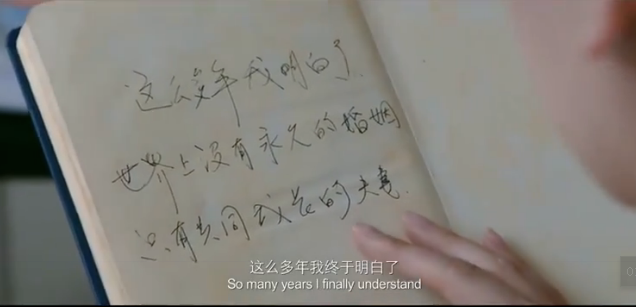 这么多年我明白了
世界上没有永久的婚姻
只有共同成长的夫妻.
这么多年我终于明白了
So many years I finally understand